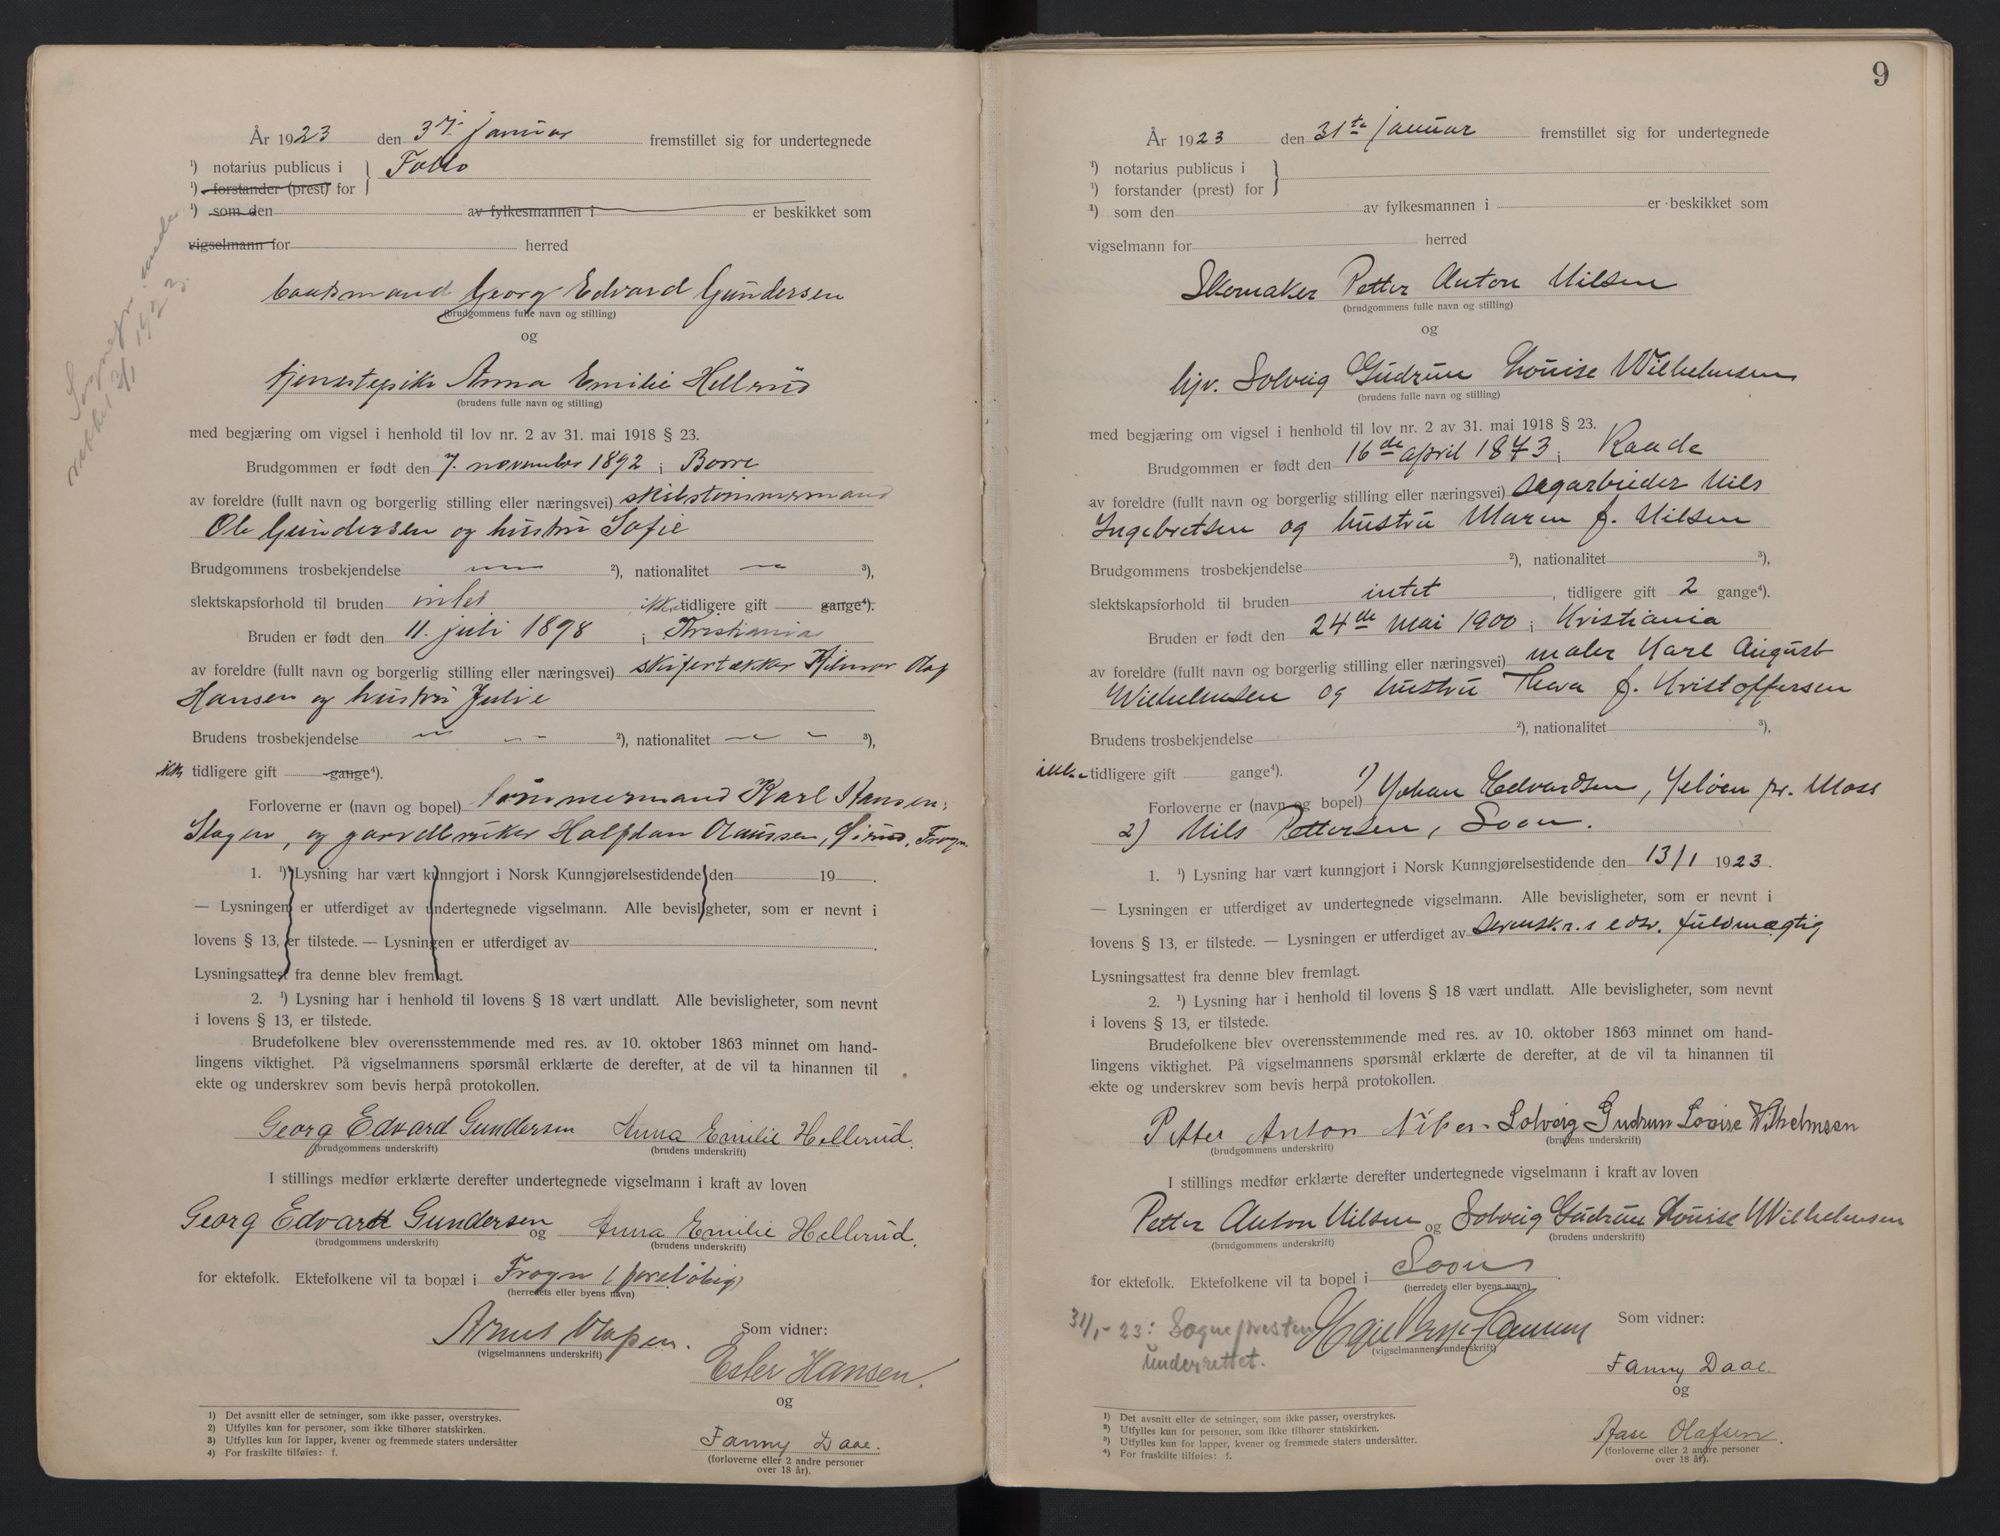 År 1923 den 3. januar fremstillet sig for undertegnede
¹) notarius publicus i } Follo
¹) forstander (prest) for
¹) som den av fylkesmannen i er beskikket som
vigselmann for herred
baatsmand Georg Edvard Gundersen
(brudgommens fulle navn og stilling)
og
tjenestepike Anna Emilie Hellrud
(brudens fulle navn og stilling)
med begjæring om vigsel i henhold til lov nr. 2 av 31. mai 1918 § 23.
Brudgommen er født den 7. november 1892 i Borre
av foreldre (fullt navn og borgerlig stilling eller næringsvei) skibstømmermand
Ole Gundersen og hustru Sofie
Brudgommens trosbekjendelse — ²), nationalitet — ³),
slektskapsforhold til bruden intet ikke tidligere gift gange⁴).
Bruden er født den 11. juli 1898 i Kristiania
av foreldre (fullt navn og borgerlig stilling eller næringsvei) skifertækker Hilmar Olaf
Hansen og hustru Julie
Brudens trosbekjendelse — ²), nationalitet — ³),
ikke tidligere gift gange⁴).
Forloverne er (navn og bopel) tømmermand Karl Hansen,
Slagen, og gaardbruker Halfdan Olaussen, Frogn.
1. ¹) Lysning har vært kunngjort i Norsk Kunngjørelsestidende den 19 .
— Lysningen er utferdiget av undertegnede vigselmann. Alle bevisligheter, som er nevnt i
lovens § 13, er tilstede. — Lysningen er utferdiget av
Lysningsattest fra denne blev fremlagt.
2. ¹) Lysning har i henhold til lovens § 18 vært undlatt. Alle bevisligheter, som nevnt
i lovens § 13, er tilstede.
Brudefolkene blev overensstemmende med res. av 10. oktober 1863 minnet om hand-
lingens viktighet. På vigselmannens spørsmål erklærte de derefter, at de vil ta hinannen til
ekte og underskrev som bevis herpå protokollen.
Georg Edvard Gundersen Anna Emilie Hellerud.
(brudgommens underskrift) (brudens underskrift)
I stillings medfør erklærte derefter undertegnede vigselmann i kraft av loven
Georg Edvard Gundersen og Anna Emilie Hellerud.
(brudgommens underskrift) (brudens underskrift)
for ektefolk. Ektefolkene vil ta bopæl i Frogn (foreløbig)
(herredets eller byens navn)
Som vidner:
(vigselmannens underskrift)
Ester Hansen.
og
Fanny Daae.
(forloverne eller 2 andre personer
over 18 år).
1) Det avsnitt eller de setninger, som ikke passer, overstrykes.
2) Utfylles kun for personer, som ikke tilhører statskirken.
3) Utfylles kun for lapper, kvener og fremmede staters undersåtter
4) For fraskilte tilføies: f.
9
År 1923 den 31te januar fremstillet sig for undertegnede
¹) notarius publicus i }
¹) forstander (prest) for
¹) som den av fylkesmannen i er beskikket som
vigselmann for herred
Skomaker Petter Anton Nilsen
(brudgommens fulle navn og stilling)
og
hjv. Solveig Gudrun Louise Wilhelmsen
(brudens fulle navn og stilling)
med begjæring om vigsel i henhold til lov nr. 2 av 31. mai 1918 § 23.
Brudgommen er født den 16de april 1873 i Raade
av foreldre (fullt navn og borgerlig stilling eller næringsvei) sagarbeider Nils
Ingebretsen og hustru Maren f. Nilsen
Brudgommens trosbekjendelse ²), nationalitet ³),
slektskapsforhold til bruden intet , tidligere gift 2 gange⁴).
Bruden er født den 24de mai 1900 i Kristiania
av foreldre (fullt navn og borgerlig stilling eller næringsvei) maler Karl August
Wilhelmsen og hustru Thora f. Kristoffersen
Brudens trosbekjendelse ²), nationalitet ³),
ikke tidligere gift gange⁴).
Forloverne er (navn og bopel) 1) Johan Edvardsen, Jeløen pr. Moss
2) Nils Pettersen, Soon.
1. ¹) Lysning har vært kunngjort i Norsk Kunngjørelsestidende den 13/1 1923.
— Lysningen er utferdiget av undertegnede vigselmann. Alle bevisligheter, som er nevnt i
lovens § 13, er tilstede. — Lysningen er utferdiget av fuldmægtig
Lysningsattest fra denne blev fremlagt.
2. ¹) Lysning har i henhold til lovens § 18 vært undlatt. Alle bevisligheter, som nevnt
i lovens § 13, er tilstede.
Brudefolkene blev overensstemmende med res. av 10. oktober 1863 minnet om hand-
lingens viktighet. På vigselmannens spørsmål erklærte de derefter, at de vil ta hinannen til
ekte og underskrev som bevis herpå protokollen.
Petter Anton Nilsen Solveig Gudrun Lovise Wilhelmsen
(brudgommens underskrift) (brudens underskrift)
I stillings medfør erklærte derefter undertegnede vigselmann i kraft av loven
Petter Anton Nilsen og Solveig Gudrun Louise Wilhelmsen
(brudgommens underskrift) (brudens underskrift)
for ektefolk. Ektefolkene vil ta bopel i Soon
(herredets eller byens navn)
31/1-23: Sognepresten
underrettet.
Som vidner:
(vigselmannens underskrift)
Fanny Daae.
og
Aase Olafsen.
(forloverne eller 2 andre personer
over 18 år).
1) Det avsnitt eller de setninger, som ikke passer, overstrykes.
2) Utfylles kun for personer, som ikke tilhører statskirken.
3) Utfylles kun for lapper, kvener og fremmede staters undersåtter.
4) For fraskilte tilføies: f.